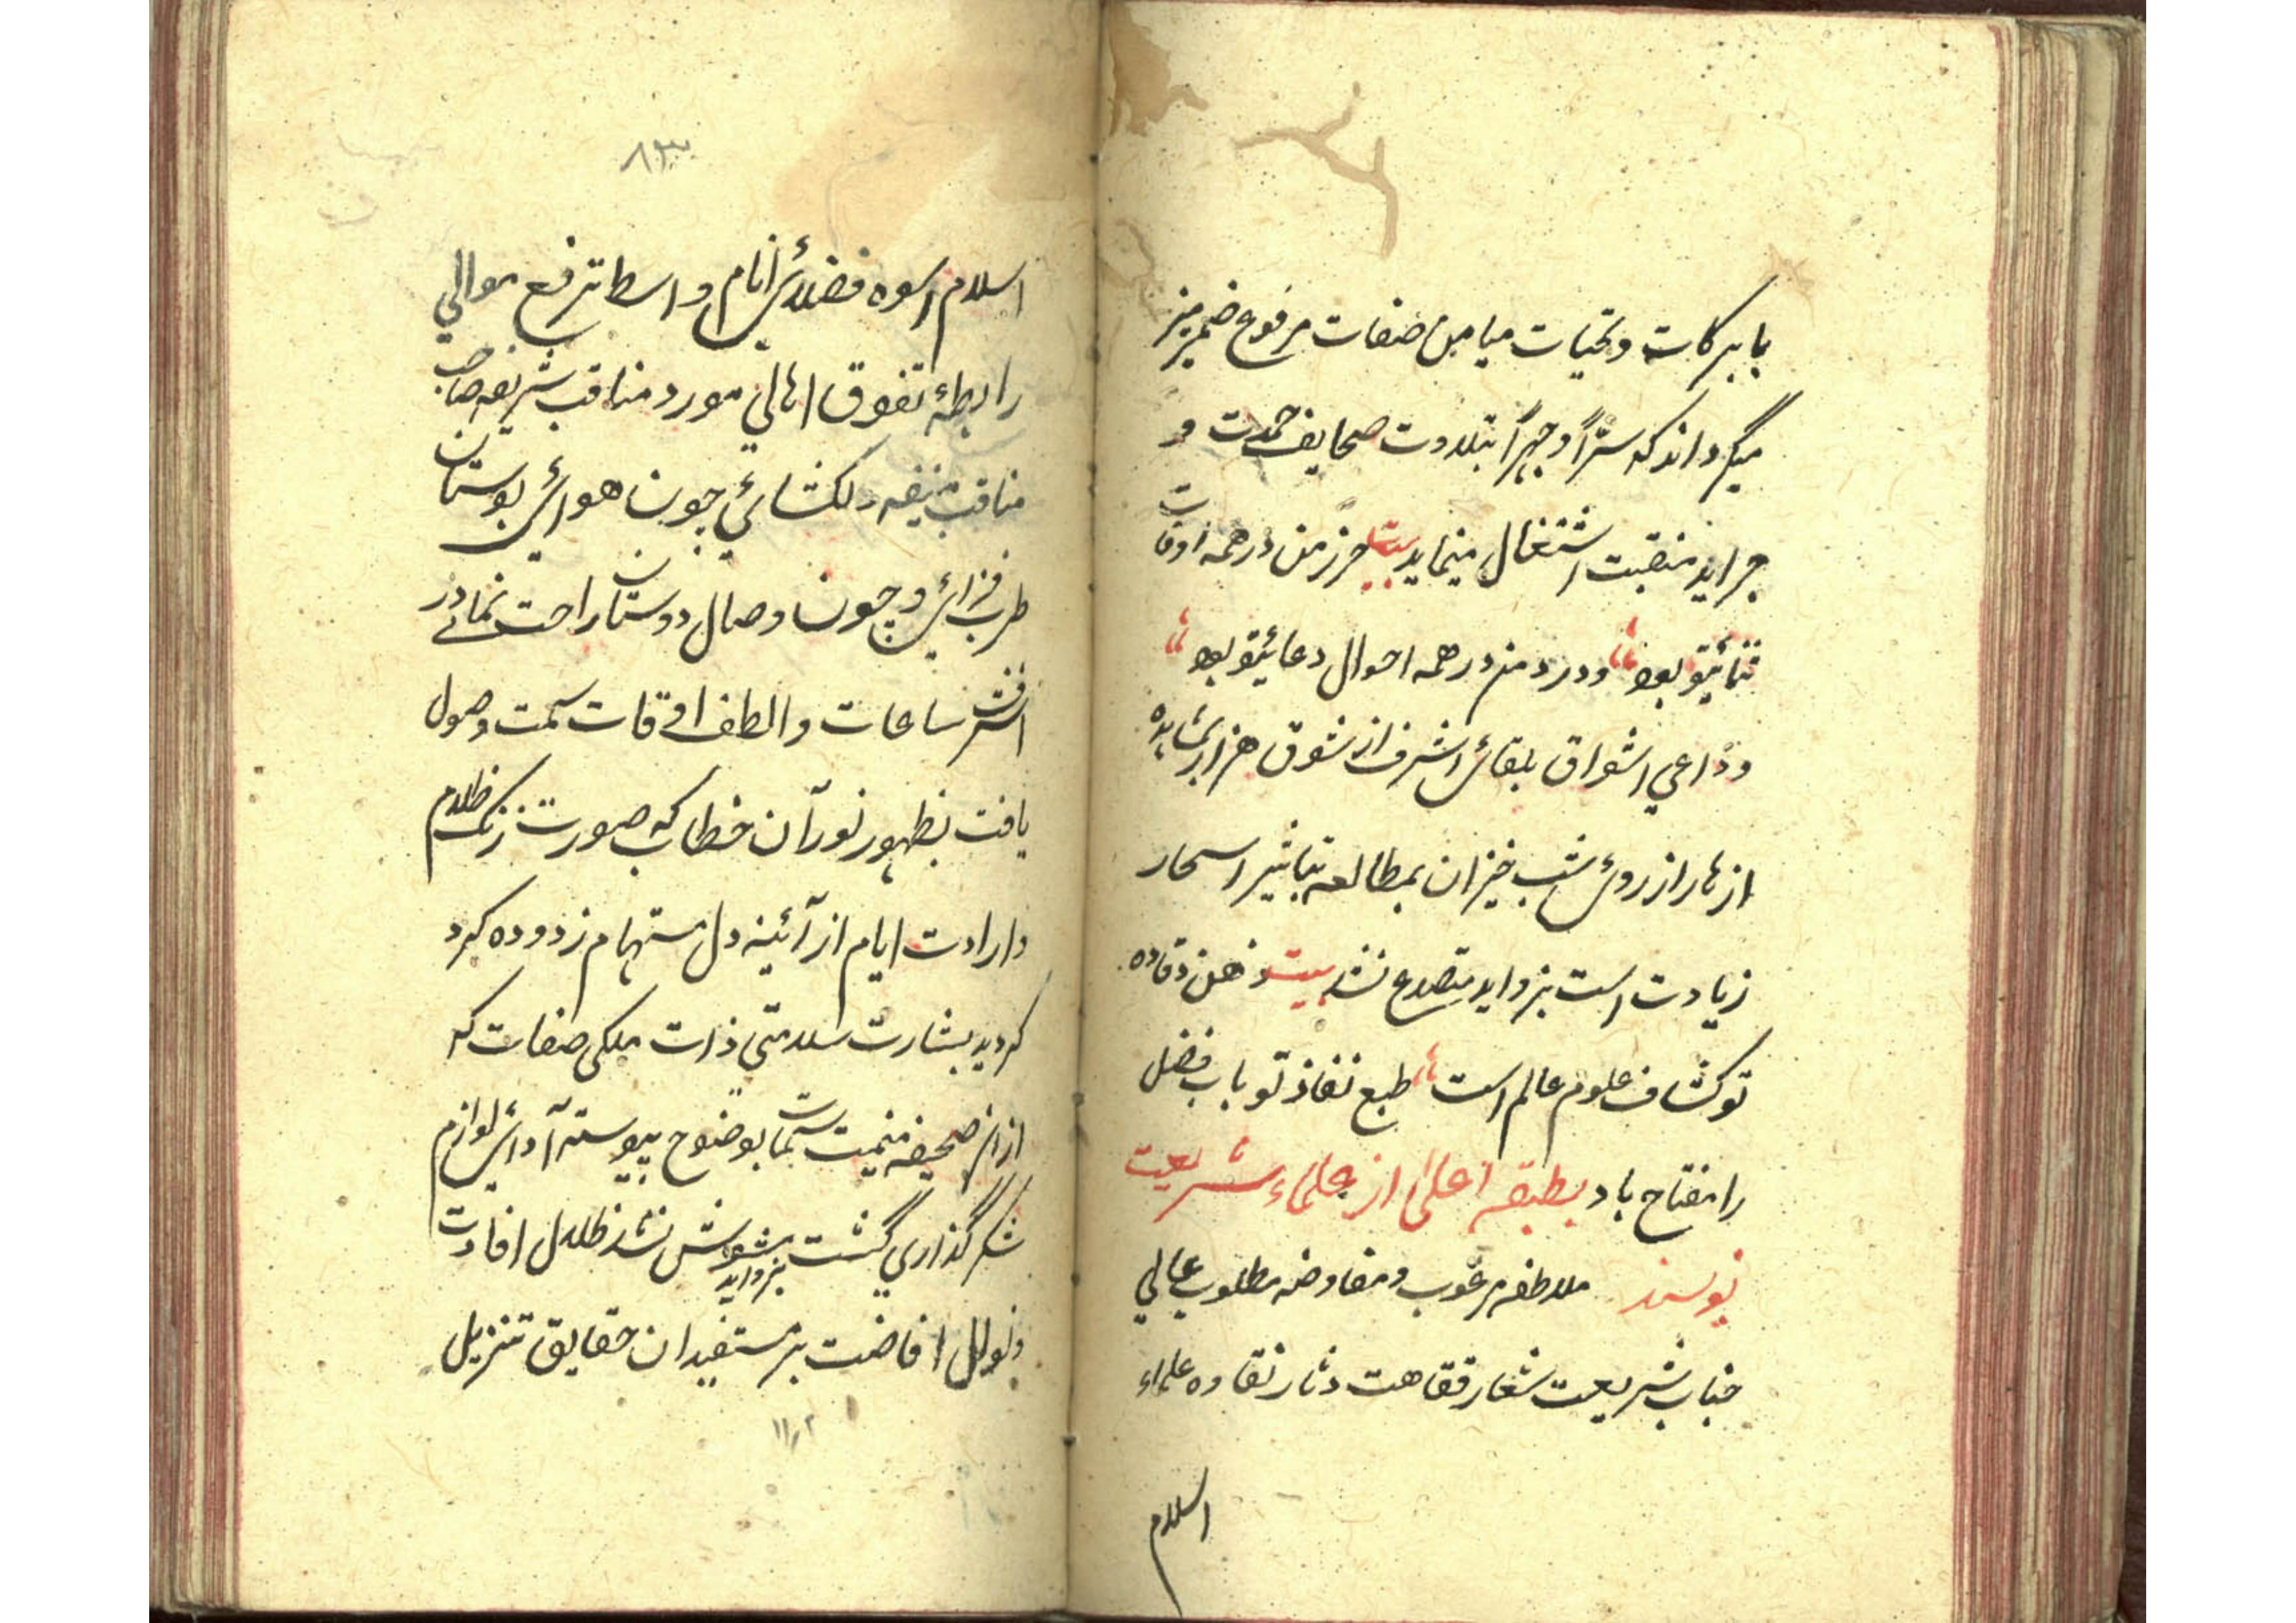 بابركات وتحيات ميامن صفات مرفوع ضمير منير
ميگرداند كه سرّاً وجهراً بتلاوت صحايف محمدت و
جرايد منقبت اشتغال مينمايد بيت حرز من در همه اوقات
ثنائيتو بود ودرد من در همه احوال دعائيتو بود
ودواعي اشواق بلقائ اشرف از شوق هزار بمشاهده
ازهار از روئ شب خيزان بمطالعه تباشير اسحار
زيادت است بزوايد متصدع نشد بيت ذهن وقاده
تو كشاف علوم عالم است طبع نفاذ تو باب فضل
را مفتاح باد بطبقه اعلى از علماء شريعت
نويسند ملاطفه مرغوب ومفاوضه مطلوب عالي
جناب شريعت شعار فقاهت دثار نقاوه علماء
اسلام
۸۳
اسلام اسوه فضلائ انام واسطه ترفع موالي
رابطهٔ تفوق اهالي مورد مناقب شريفه صاحب
مناقب منيفه دلكشائي چون هوائ بوستان
طرب فزائ وچون وصال دوستان راحت نمائے در
اشرف ساعات والطف اوقات سمت وصول
يافت بظهور نور آن خطاب كه صورت زنگ ظلام
وارادت ايام از آئينه دل مستهام زدوده كرد
كرديد بشارت سلامتي ذات ملكي صفات كه
ازان صحيفه منيت سمات بوضوح پيوسته آدائ لوازم
شكر گذاري گشت بزوايد مشوش نشد ظلال افادت
ونوال افاضت بر مستفيدان حقايق تنزيل